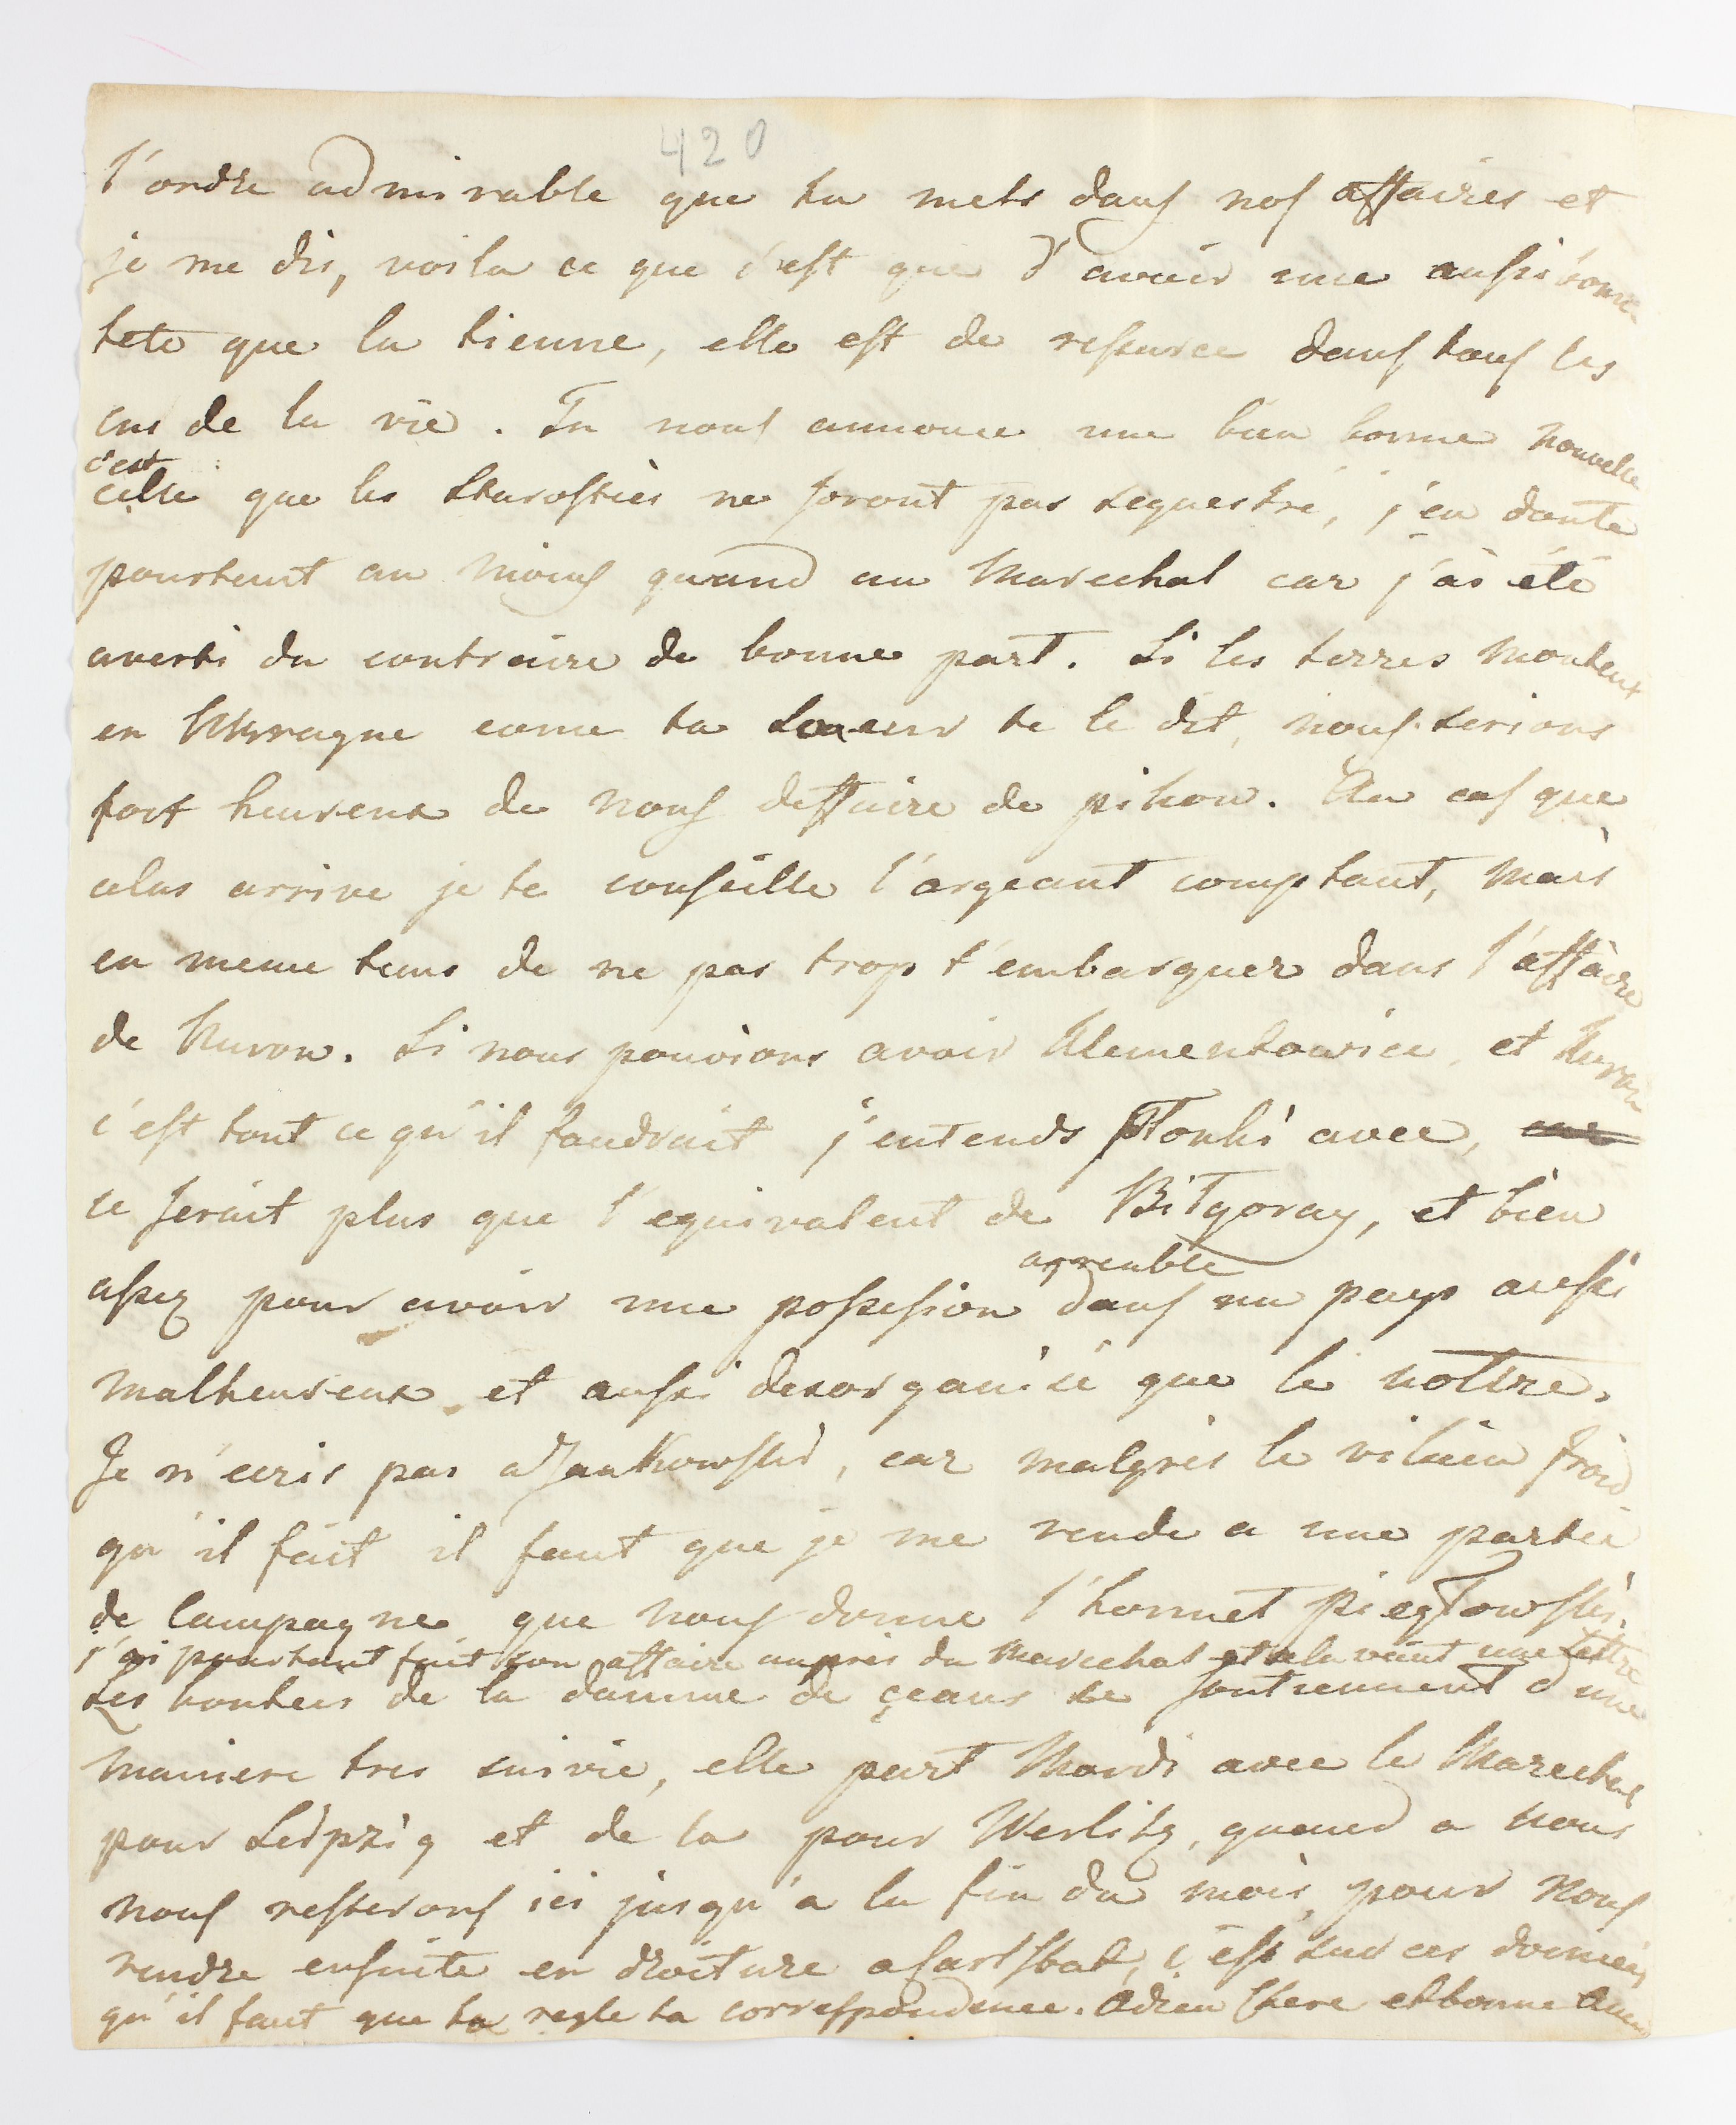 420
l'ordre admirable que tu mets dans nos affaires et
je me dis, voila ce que c'est que d'avoir une aussi bonne
tete que la tienne, elle est de ressource dans tous les
cas de la vie. Tu nous annonce une bien bonne nouvelle
c'est
celle que les Starosties ne seront pas sequestré, j'en doute
pourtant au moins quand au Marechal car j'ai été
averti du contraire de bonne part. Si les terres montent
en Ukragne come ta soeur te le dit, nous serions
fort heureux de nous deffaire de pikow. Au cas que
celas arrive je te conseille l'argeant comptant, mais
en meme tems de ne pas trop t'embarquer dans l'affaire
de Kurow. Si nous pouvions avoir Klementowice, et Kurow
c'est tout ce qu'il faudrait j'entends Płonki avec,
ce serait plus que l'equivalent de Biłgoray, et bien
agreable
assez pour avoir une possession dans un pays aussi
malheureux et aussi desorganisé que le notre.
Je n'ecris pas a Jankowski, car malgrès le vilain froid
qu'il fait il faut que je me rende a une partie
de Campagne que nous donne l'honnet Piegłowski.
j'ai pourtant fait son affaire aupres du Marechal et cela vaut une lettre
Les bontees de la damme de çeans se soutiennent d'une
maniere tres suivie, elle part Mardi avec le Marechal
pour Leipzig et de la pour Werlitz, quand a nous
nous resterons ici jusqu'a la fin du mois, pour nous
rendre ensuite en droiture a Carlsbat, c'est sur ces donnees
qu'il faut que tu regle ta correspondence. Adieu Chere et bonne Amie